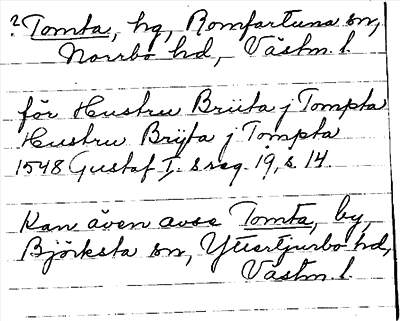 ? Tomta, hg, Romfartuna sn,
Norrbo hd, Västm. l.
för Hustru Briita j Tompta
Hustru Brÿta j Tompta
1548 Gustaf I. s reg. 19, s. 14.
Kan även avse Tomta, by,
Björksta sn, Yttertjurbo hd,
Västm. l.